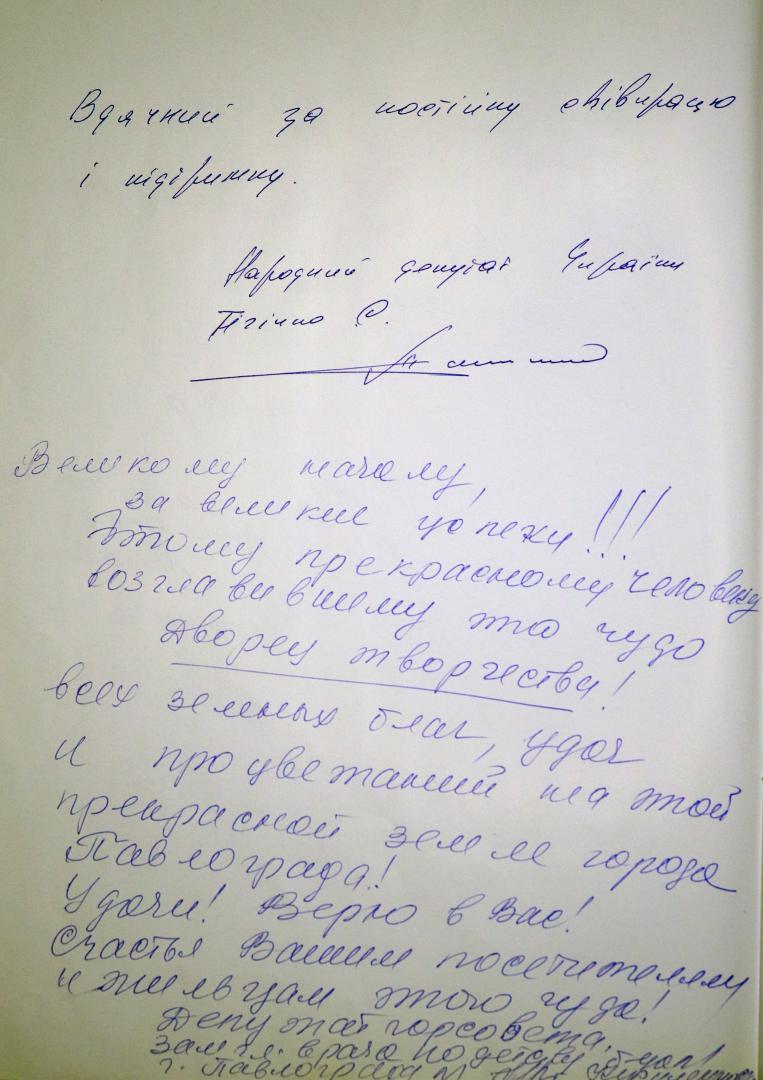 Вдячний за постійну співпрацю
і підтримку.
Народний депутат України
Тігіпко С.
Великому началу,
за великие успехи!!!
Этому прекрасному человеку
возглавившему это чудо
Дворец творчества!
всех земных благ, удач
и процветаний на этой
прекрасной земле города
Павлограда!
Удачи! Верю в Вас!
Счастья Вашим посетителям
и жильцам этого чуда!
Депутат горсовета.
зам гл. врача по детству
г. Павлограда